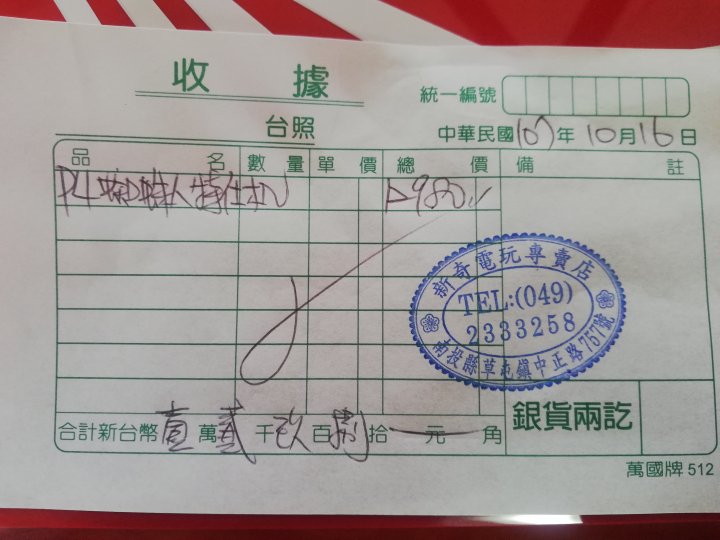 收據
統一編號
台照
中華民國107年10月16日
品名 數量 單價 總價 備註
P4蜘蛛人特仕機
新奇電玩專賣店
TEL:(049)
2333258
南投縣草屯鎮中正路757號
合計新台幣壹萬貳千玖百捌拾元角
銀貨兩訖
萬國牌 512